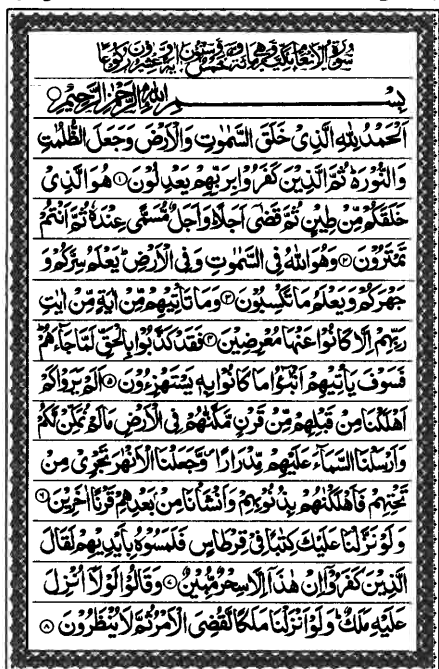 سورة الانعام مكية وهى مائة وخمس وستون اية وعشرون ركوعا
بِسْمِ اللّٰهِ الرَّحْمٰنِ الرَّحِيْمِ
اَلْحَمْدُ لِلّٰهِ الَّذِىْ خَلَقَ السَّمٰوٰتِ وَالْاَرْضَ وَجَعَلَ الظُّلُمٰتِ
وَالنُّوْرَ ۬ؕ ثُمَّ الَّذِيْنَ كَفَرُوْا بِرَبِّهِمْ يَعْدِلُوْنَ ۱ هُوَ الَّذِىْ
خَلَقَكُمْ مِّنْ طِيْنٍ ثُمَّ قَضٰۤى اَجَلًا ؕ وَاَجَلٌ مُّسَمًّى عِنْدَهٗ ثُمَّ اَنْتُمْ
تَمْتَرُوْنَ ۲ وَهُوَ اللّٰهُ فِى السَّمٰوٰتِ وَفِى الْاَرْضِ ؕ يَعْلَمُ سِرَّكُمْ وَ
جَهْرَكُمْ وَيَعْلَمُ مَا تَكْسِبُوْنَ ۳ وَمَا تَاْتِيْهِمْ مِّنْ اٰيَةٍ مِّنْ اٰيٰتِ
رَبِّهِمْ اِلَّا كَانُوْا عَنْهَا مُعْرِضِيْنَ ۴ فَقَدْ كَذَّبُوْا بِالْحَقِّ لَمَّا جَآءَهُمْ ؕ
فَسَوْفَ يَاْتِيْهِمْ اَنْۢبٰٓؤُا مَا كَانُوْا بِهٖ يَسْتَهْزِءُوْنَ ۵ اَلَمْ يَرَوْا كَمْ
اَهْلَكْنَا مِنْ قَبْلِهِمْ مِّنْ قَرْنٍ مَّكَّنّٰهُمْ فِى الْاَرْضِ مَا لَمْ نُمَكِّنْ لَّكُمْ
وَاَرْسَلْنَا السَّمَآءَ عَلَيْهِمْ مِّدْرَارًا ۪ وَّجَعَلْنَا الْاَنْهٰرَ تَجْرِىْ مِنْ
تَحْتِهِمْ فَاَهْلَكْنٰهُمْ بِذُنُوْبِهِمْ وَاَنْشَاْنَا مِنْۢ بَعْدِهِمْ قَرْنًا اٰخَرِيْنَ ۶
وَلَوْ نَزَّلْنَا عَلَيْكَ كِتٰبًا فِىْ قِرْطَاسٍ فَلَمَسُوْهُ بِاَيْدِيْهِمْ لَقَالَ
الَّذِيْنَ كَفَرُوْۤا اِنْ هٰذَاۤ اِلَّا سِحْرٌ مُّبِيْنٌ ۷ وَقَالُوْا لَوْلَاۤ اُنْزِلَ
عَلَيْهِ مَلَكٌ ؕ وَلَوْ اَنْزَلْنَا مَلَكًا لَّقُضِىَ الْاَمْرُ ثُمَّ لَا يُنْظَرُوْنَ ۸